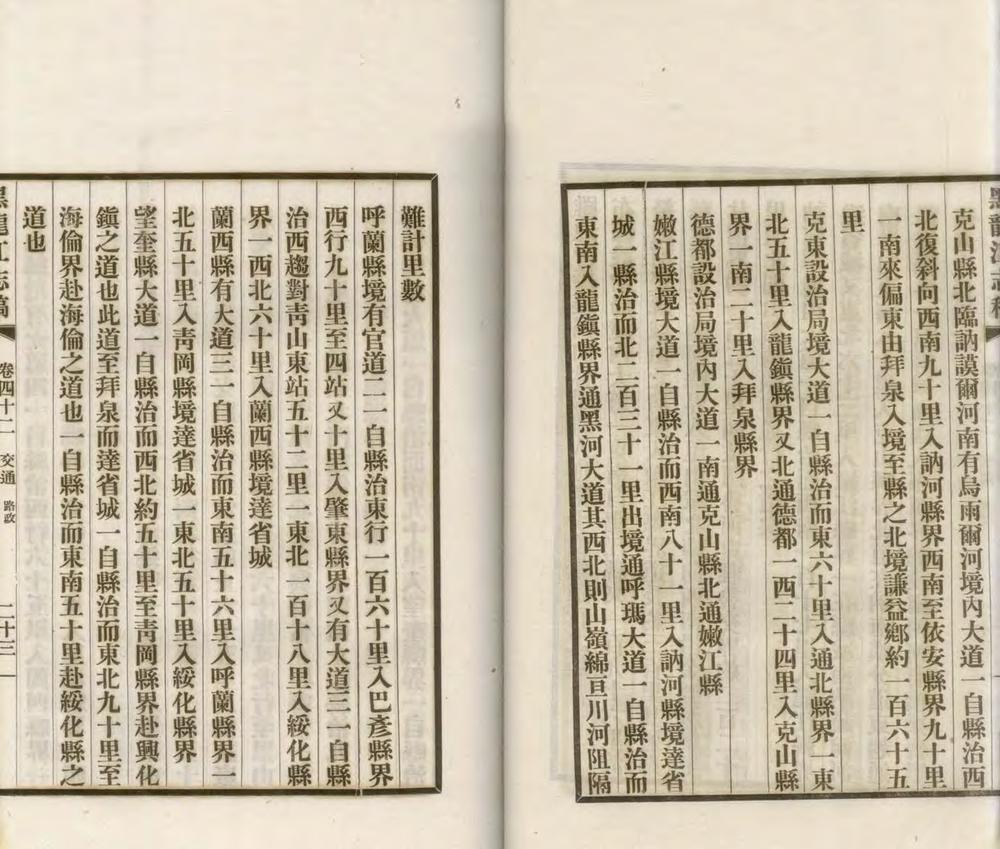 黑龍江志稿
克山縣北臨訥謨爾河南有烏雨爾河境內大道一自縣治西
北復斜向西南九十里入訥河縣界西南至依安縣界九十里
一南來偏東由拜泉入境至縣之北境謙益鄉約一百六十五
里
克東設治局境大道一自縣治而東六十里入通北縣界一東
北五十里入龍鎭縣界又北通德都一西二十四里入克山縣
界一南二十里入拜泉縣界
德都設治局境內大道一南通克山縣北通嫩江縣
嫩江縣境大道一自縣治而西南八十一里入訥河縣境達省
城一縣治而北二百三十一里出境通呼瑪大道一自縣治而
東南入龍鎭縣界通黑河大道其西北則山嶺綿亘川河阻隔
難計里數
呼蘭縣境有官道二一自縣治東行一百六十里入巴彥縣界
西行九十里至四站又十里入肇東縣界又有大道三一自縣
治西趨對靑山東站五十二里一東北一百十八里入綏化縣
界一西北六十里入蘭西縣境達省城
蘭西縣有大道三一自縣治而東南五十六里入呼蘭縣界一
北五十里入靑岡縣境達省城一東北五十里入綏化縣界
望奎縣大道一自縣治而西北約五十里至靑岡縣界赴興化
鎭之道也此道至拜泉而達省城一自縣治而東北九十里至
海倫界赴海倫之道也一自縣治而東南五十里赴綏化縣之
道也
黑龍江志稿 卷四十二 交通 路政 二十三